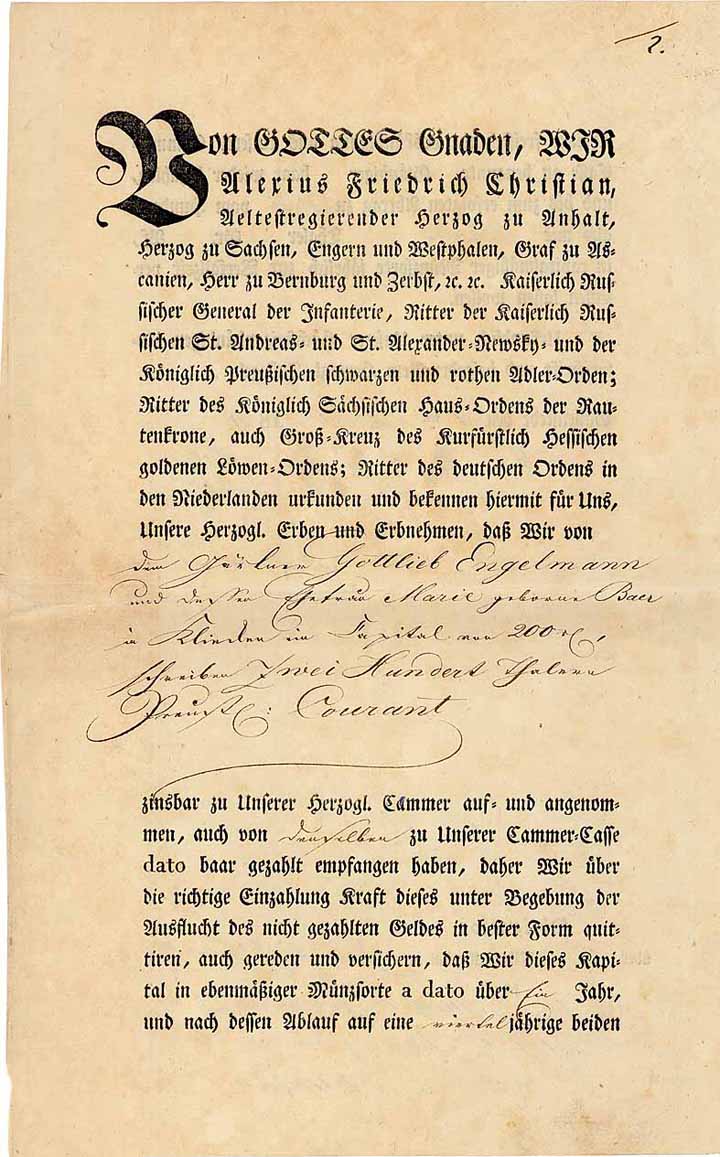 2.
Von GOTTES Gnaden, WIR
Alexius Friedrich Christian,
Aeltestregierender Herzog zu Anhalt,
Herzog zu Sachsen, Engern und Westphalen, Graf zu As-
canien, Herr zu Bernburg und Zerbst, ꝛc. ꝛc. Kaiserlich Rus-
sischer General der Infanterie, Ritter der Kaiserlich Rus-
sischen St. Andreas- und St. Alexander-Newsky- und der
Königlich Preußischen schwarzen und rothen Adler-Orden;
Ritter des Königlich Sächsischen Haus-Ordens der Rau-
tenkrone, auch Groß-Kreuz des Kurfürstlich Hessischen
goldenen Löwen-Ordens; Ritter des deutschen Ordens in
den Niederlanden urkunden und bekennen hiermit für Uns,
Unsere Herzogl. Erben und Erbnehmen, daß Wir von
dem Gottlieb Engelmann
und dessen Ehefrau Marie geborne Baer
in ein Capital von 200
schreiben Zwei Hundert Thalern
Preuß: Courant
zinsbar zu Unserer Herzogl. Cammer auf- und angenom-
men, auch von denselben zu Unserer Cammer-Casse
dato baar gezahlt empfangen haben, daher Wir über
die richtige Einzahlung Kraft dieses unter Begebung der
Ausflucht des nicht gezahlten Geldes in bester Form quit-
tiren, auch gereden und versichern, daß Wir dieses Kapi-
tal in ebenmäßiger Münzsorte a dato über Ein Jahr,
und nach dessen Ablauf auf eine vierteljährige beiden